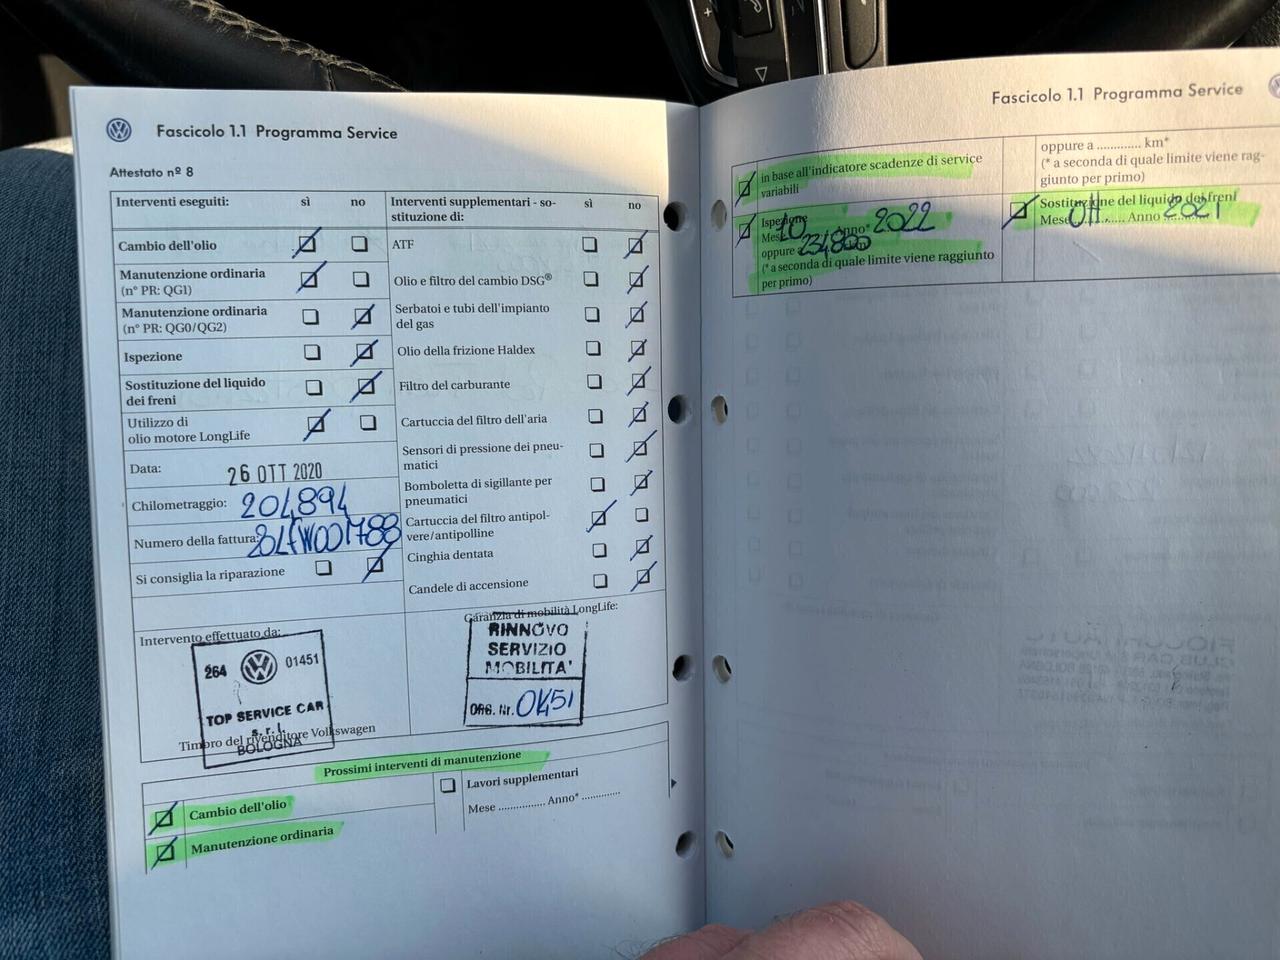 Fascicolo 1.1 Programma Service
Attestato nº 8
Interventi eseguiti: sì no
Cambio dell'olio
Manutenzione ordinaria
(n° PR: QG1)
Manutenzione ordinaria
(n° PR: QG0/QG2)
Ispezione
Sostituzione del liquido
dei freni
Utilizzo di
olio motore LongLife
Data: 26 OTT 2020
Chilometraggio: 204894
Numero della fattura:
Si consiglia la riparazione
Interventi supplementari - so-
stituzione di: sì no
ATF
Olio e filtro del cambio DSG®
Serbatoi e tubi dell'impianto
del gas
Olio della frizione Haldex
Filtro del carburante
Cartuccia del filtro dell'aria
Sensori di pressione dei pneu-
matici
Bomboletta di sigillante per
pneumatici
Cartuccia del filtro antipol-
vere/antipolline
Cinghia dentata
Candele di accensione
Intervento effettuato da:
264 01451
TOP SERVICE CAR
s.r.l.
BOLOGNA
Timbro del rivenditore Volkswagen
Garanzia di mobilità LongLife:
RINNOVO
SERVIZIO
MOBILITA'
ORG. Nr.
Prossimi interventi di manutenzione
Cambio dell'olio
Manutenzione ordinaria
Lavori supplementari
Mese ................ Anno* .............
Fascicolo 1.1 Programma Service
in base all'indicatore scadenze di service
variabili
Ispezione
Mese 10 Anno* 2022
oppure a 234800 km*
(* a seconda di quale limite viene raggiunto
per primo)
oppure a ............. km*
(* a seconda di quale limite viene rag-
giunto per primo)
Sostituzione del liquido dei freni
Mese Ott Anno 2021